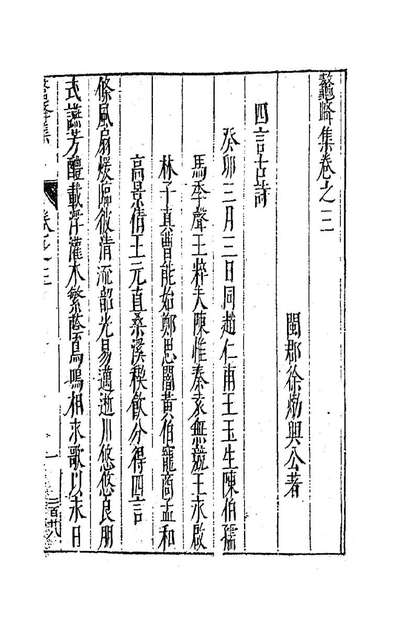 鼇峰集卷之三
閩郡徐𤊹興公著
四言古詩
癸卯三月三日同趙仁甫王玉生陳伯孺
馬季聲王粹夫陳惟秦袁無競王永啟
林子真曹能始鄭思闇黃伯寵商孟和
高景倩王元直桑溪稧飲分得四言
條風扇煖臨彼清流韶光易邁逝川悠悠良朋
式讌芳醴載浮灌木繁蔭鳥鳴相求歌以永日